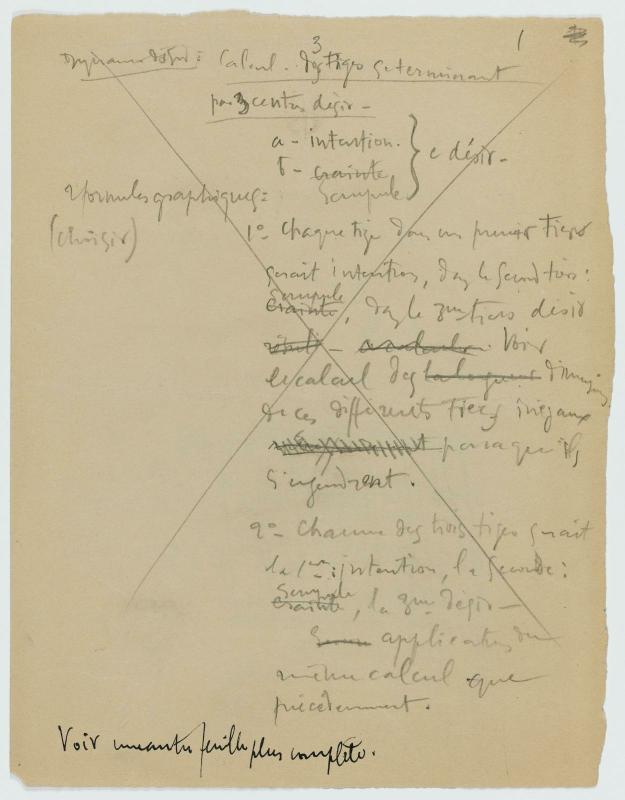 3
1
Calcul. des tiges se terminant
par 3 centres désir –
a – intention.
b – crainte
Scrupule
} c désir –
2 formules graphiques :
(choisir)
1º – chaque tige dans un premier tiers
serait intention, dans le second tiers :
Scrupule
crainte, dans le 3me tiers désir
réduit – Voir
le calcul des longueurs
de ces différents tiers inégaux
parce qu'ils
s'engendrent.
2º – chacune des trois tiges serait
la 1ère : intention, la seconde :
Scrupule
crainte, la 3me désir –
application du
même calcul que
précédemment.
Voir une autre feuille plus complète.